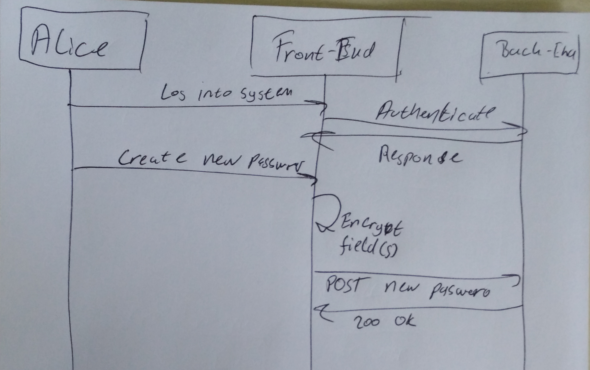 Alice
Front-End
Back-End
Log into system
Authenticate
Response
Create new password
Encrypt
field(s)
POST new password
200 OK